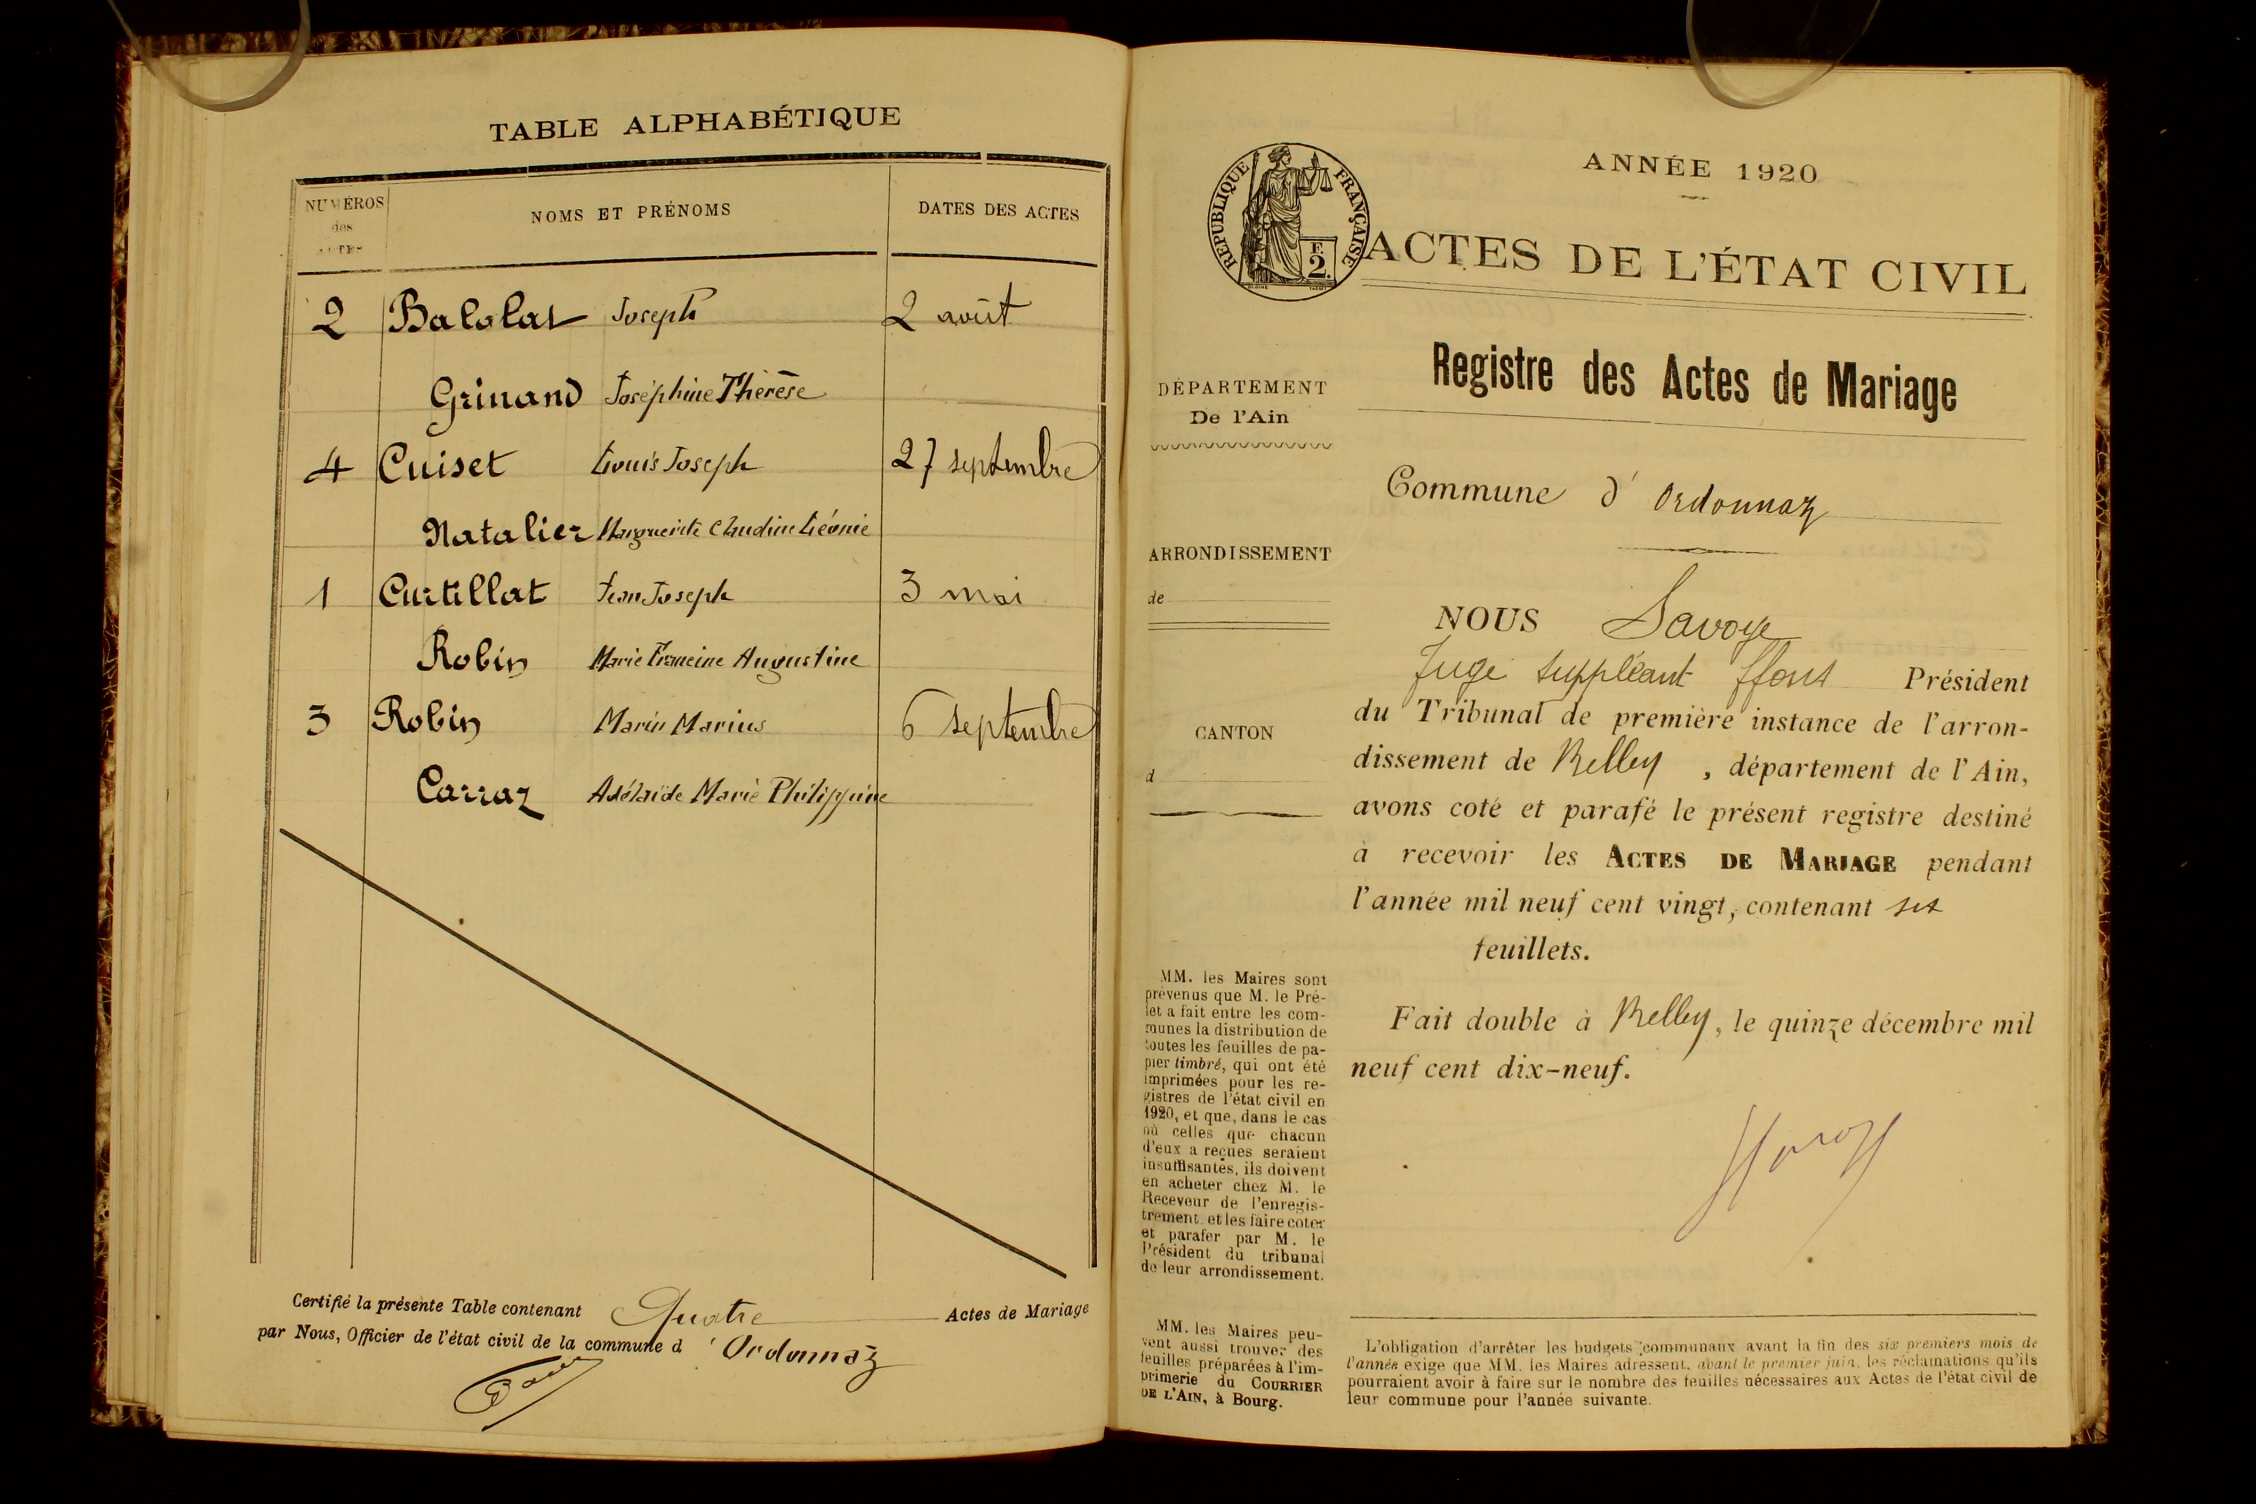 TABLE ALPHABÉTIQUE
NUMÉROS
des
ACTES
NOMS ET PRÉNOMS
DATES DES ACTES
2 Balolat Joseph 2 août
Grinand Joséphine Thérèse
4 Cuiset Louis Joseph 27 septembre
Natalier Marguerite Claudine Léonie
1 Curtillat Jean Joseph 3 mai
Robin Marie Francine Augustine
3 Robin Marin Marius 6 septembre
Carraz Adélaïde Marie Philippine
Certifié la présente Table contenant Quatre Actes de Mariage
par Nous, Officier de l'état civil de la commune d'Ordonnaz
RÉPUBLIQUE FRANÇAISE
F.
2.
ANNÉE 1920
ACTES DE L'ÉTAT CIVIL
Registre des Actes de Mariage
DÉPARTEMENT
De l'Ain
Commune d'Ordonnaz
ARRONDISSEMENT
de
CANTON
d
NOUS Savoye
Juge suppléant ffons Président
du Tribunal de première instance de l'arron-
dissement de Belley, département de l'Ain,
avons coté et parafé le présent registre destiné
à recevoir les ACTES DE MARIAGE pendant
l'année mil neuf cent vingt, contenant six
feuillets.
Fait double à Belley, le quinze décembre mil
neuf cent dix-neuf.
MM. les Maires sont
prévenus que M. le Pré-
fet a fait entre les com-
munes la distribution de
toutes les feuilles de pa-
pier timbré, qui ont été
imprimées pour les re-
gistres de l'état civil en
1920, et que, dans le cas
où celles que chacun
d'eux a reçues seraient
insuffisantes, ils doivent
en acheter chez M. le
Receveur de l'enregis-
trement et les faire coter
et parafer par M. le
Président du tribunal
de leur arrondissement.
MM. les Maires peu-
vent aussi trouver des
feuilles préparées à l'im-
primerie du COURRIER
DE L'AIN, à Bourg.
L'obligation d'arrêter les budgets communaux avant la fin des six premiers mois de
l'année exige que MM. les Maires adressent, avant le premier juin, les réclamations qu'ils
pourraient avoir à faire sur le nombre des feuilles nécessaires aux Actes de l'état civil de
leur commune pour l'année suivante.